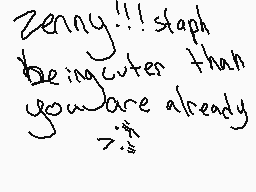 Zenny!!! staph
being cuter than
you are already